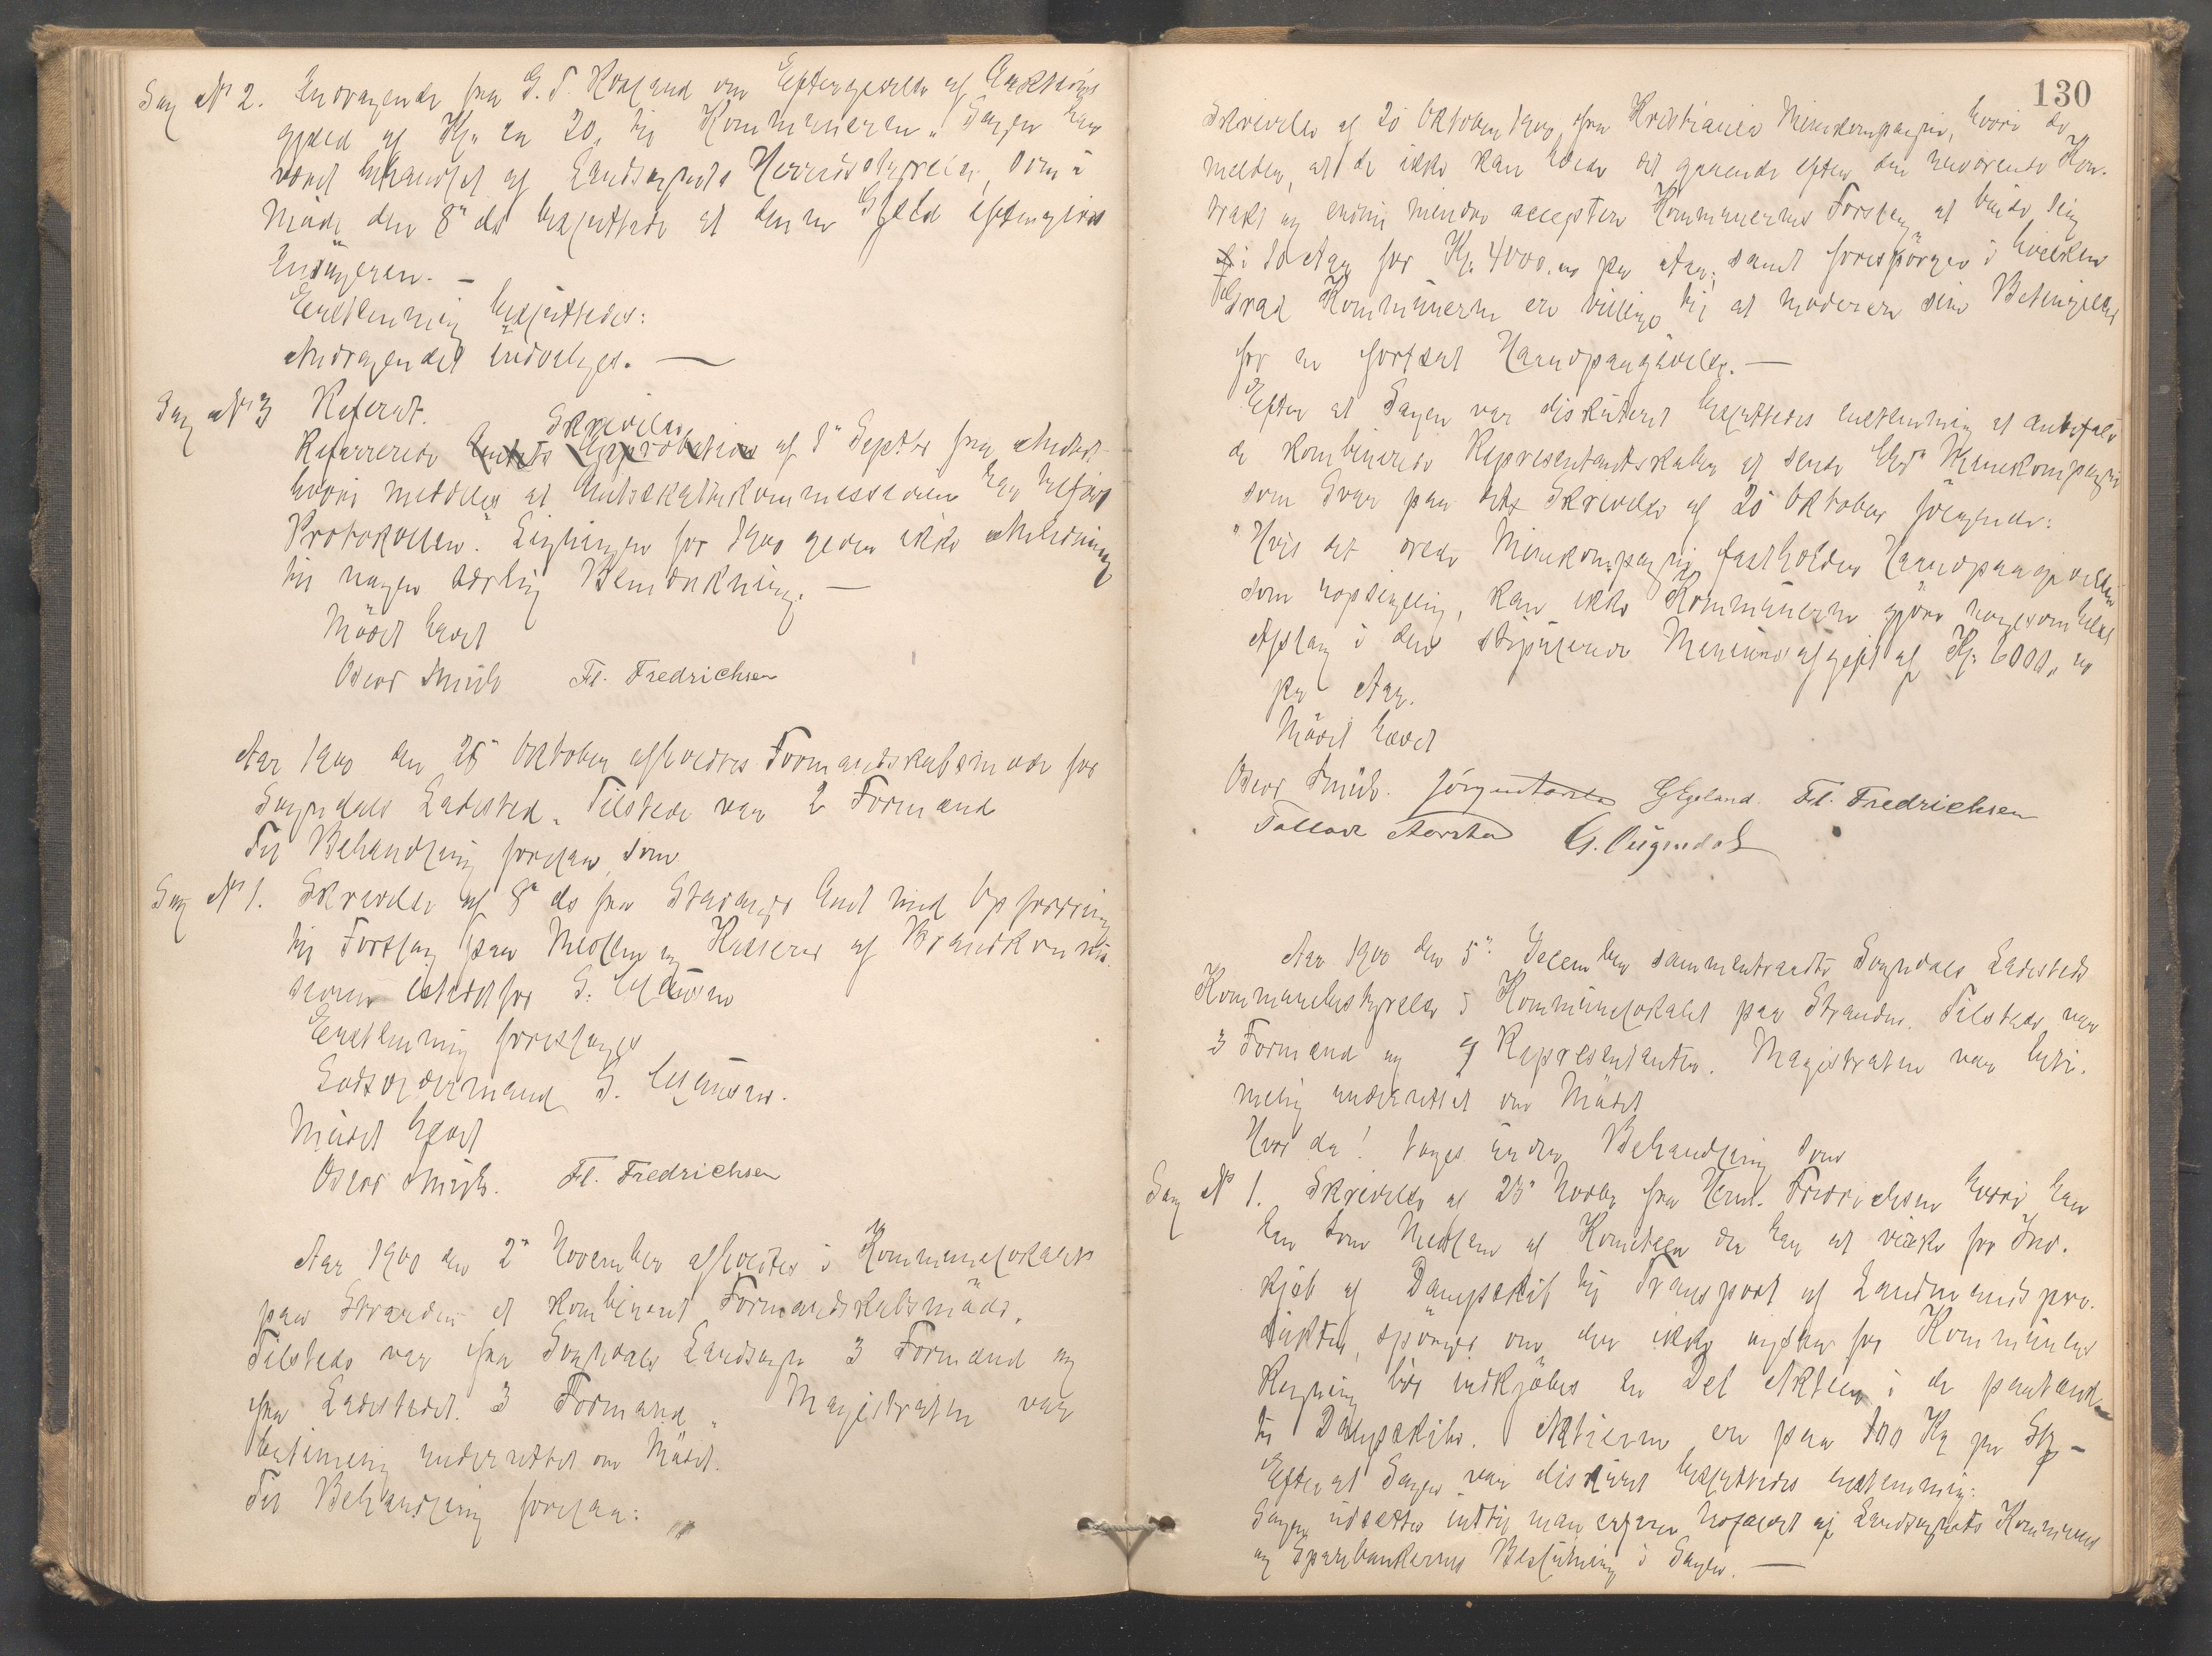 Sag No 2. Andragende fra G. T. Rosland om Eftergivelse af Auktions
gjæld af Kr. 20, til Kommunerne. Sagen har
været behandlet af Landsognets Herredsstyrelse, som i
Møde den 8de ds besluttede at denne Gjæld eftergives
Ansøgeren. —
Enstemmig besluttedes:
Andragendet indvilges. —
Sag No 3 Referat.
Skrivelse
Refereredes Amtets Approbation af 1 Septbr fra Amtet
hvori meddeles at Amtsskattekommissionen har tilført
Protokollen: "Ligningen for 1900 giver ikke Anledning
til nogen særlig Bemærkning. —
Mødet hævet
Fr. Fredrichsen
Aar 1900 den 25 Oktober afholdtes Formandskabsmøde for
Sogndals Ladested. Tilstede var 2 Formænd
Til Behandling forelaa som
Sag No 1. Skrivelse af 8de ds fra Stavanger Amt med Opfordring
til Forslag paa Medlem og Kasserer af Brandkommis
sionen istedetfor G.
Enstemmig foreslaaes
Lodsoldermand G.
Mødet hævet
Fr. Fredrichsen
Aar 1900 den 2de November afholdtes i Kommunelokalet
paa Stranden et kombineret Formandskabsmøde.
Tilstede var fra Sogndals Landsogn 3 Formænd og
fra Ladestedet 3 Formænd. Magistraten var
betimelig underrettet om Mødet.
Til Behandling forelaa:
130
Skrivelse af 20 Oktober 1900 fra Kristiania Minekompagni, hvori de
melder, at de ikke kan være det gaaende efter den nuværende Kon-
trakt og endnu mindre acceptere Kommunernes Forslag at binde sig
i 10 Aar for Kr. 4000.00 pr Aar; samt forespørger i hvilken
Grad Kommunerne er villige til at moderere sine Betingelser
for en fortsat Haandpaagivelse. —
Efter at Sagen var diskuteret besluttedes enstemmig at anbefale
de kombinerede Repræsentantskaber at sende Chra Minekompagni
som Svar paa dets Skrivelse af 20 Oktober følgende:
"Hvis det ærede Minekompagni fastholder Haandpaagivelsen
som uopsigelig, kan ikke Kommunerne gjøre nogetsomhelst
Afslag i den stipulerede Minimumsafgift af Kr. 6000,00
pr Aar.
Mødet hævet
G Egeland. Fr. Fredrichsen
Aar 1900 den 5te December sammentraadte Sogndals Ladesteds
Kommunebestyrelse i Kommunelokalet paa Stranden. Tilstede var
3 Formænd og 9 Repræsentanter. Magistraten var beti-
melig underrettet om Mødet
Hvor da! toges under Behandling som
Sag No 1. Skrivelse af 23de Novbr fra Herm. Fredrichsen hvori han
han som Medlem af Komiteen der har at virke for Ind-
kjøb af Dampskib til Transport af Landmandspro-
dukter, spørger om der ikke ogsaa for Kommunens
Regning bør indkjøbes en Del Aktier i de paatænk-
te Dampskibe. Aktierne er paa 100 Kr pr Stk —
Efter at Sagen var diskuteret besluttedes enstemmig:
Sagen udsættes indtil man erfarer Udfaldet af Landsognets Kommunes
og Sparebankernes Beslutning i Sagen. —